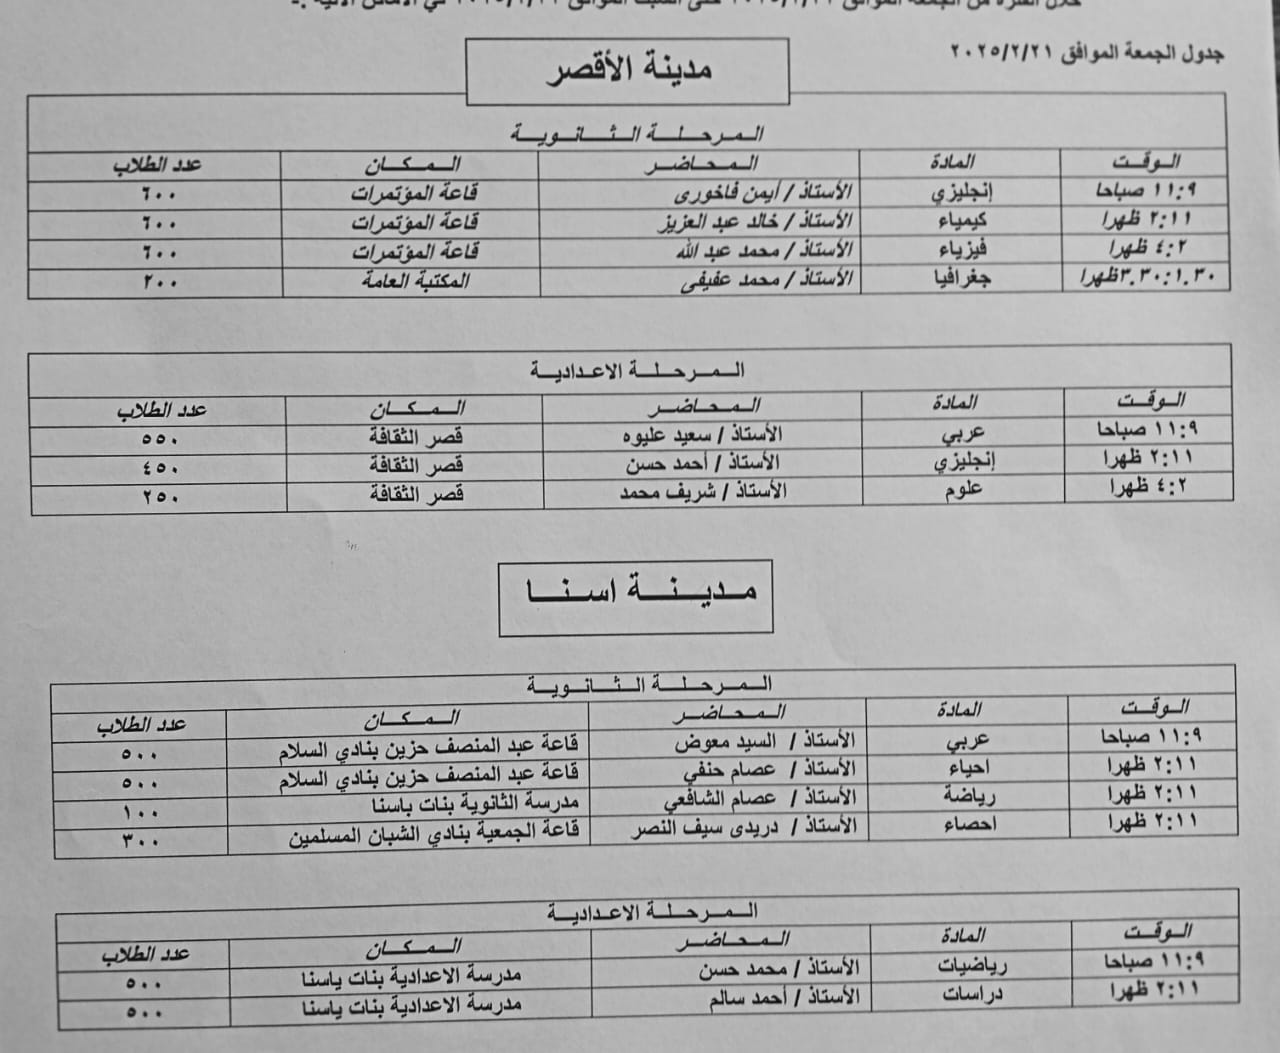 جدول الجمعة الموافق ٢٠٢٥/٢/٢١
مدينة الأقصر
المرحلة الثانوية
الوقت المادة المحاضر المكان عدد الطلاب
١١:٩ صباحا إنجليزي الأستاذ / أيمن فاخورى قاعة المؤتمرات ٦٠٠
٢:١١ ظهرا كيمياء الأستاذ / خالد عبد العزيز قاعة المؤتمرات ٦٠٠
٤:٢ ظهرا فيزياء الأستاذ / محمد عبد الله قاعة المؤتمرات ٦٠٠
٣.٣٠:١.٣٠ظهرا جغرافيا الأستاذ / محمد عفيفى المكتبة العامة ٢٠٠
المرحلة الاعدادية
الوقت المادة المحاضر المكان عدد الطلاب
١١:٩ صباحا عربي الأستاذ / سعيد عليوه قصر الثقافة ٥٥٠
٢:١١ ظهرا إنجليزي الأستاذ / أحمد حسن قصر الثقافة ٤٥٠
٤:٢ ظهرا علوم الأستاذ / شريف محمد قصر الثقافة ٢٥٠
مدينة اسنا
المرحلة الثانوية
الوقت المادة المحاضر المكان عدد الطلاب
١١:٩ صباحا عربي الأستاذ / السيد معوض قاعة عبد المنصف حزين بنادي السلام ٥٠٠
٢:١١ ظهرا احياء الأستاذ / عصام حنفي قاعة عبد المنصف حزين بنادي السلام ٥٠٠
٢:١١ ظهرا رياضة الأستاذ / عصام الشافعي مدرسة الثانوية بنات باسنا ١٠٠
٢:١١ ظهرا احصاء الأستاذ / دريدى سيف النصر قاعة الجمعية بنادي الشبان المسلمين ٣٠٠
المرحلة الاعدادية
الوقت المادة المحاضر المكان عدد الطلاب
١١:٩ صباحا رياضيات الأستاذ / محمد حسن مدرسة الاعدادية بنات ياسنا ٥٠٠
٢:١١ ظهرا دراسات الأستاذ / أحمد سالم مدرسة الاعدادية بنات ياسنا ٥٠٠